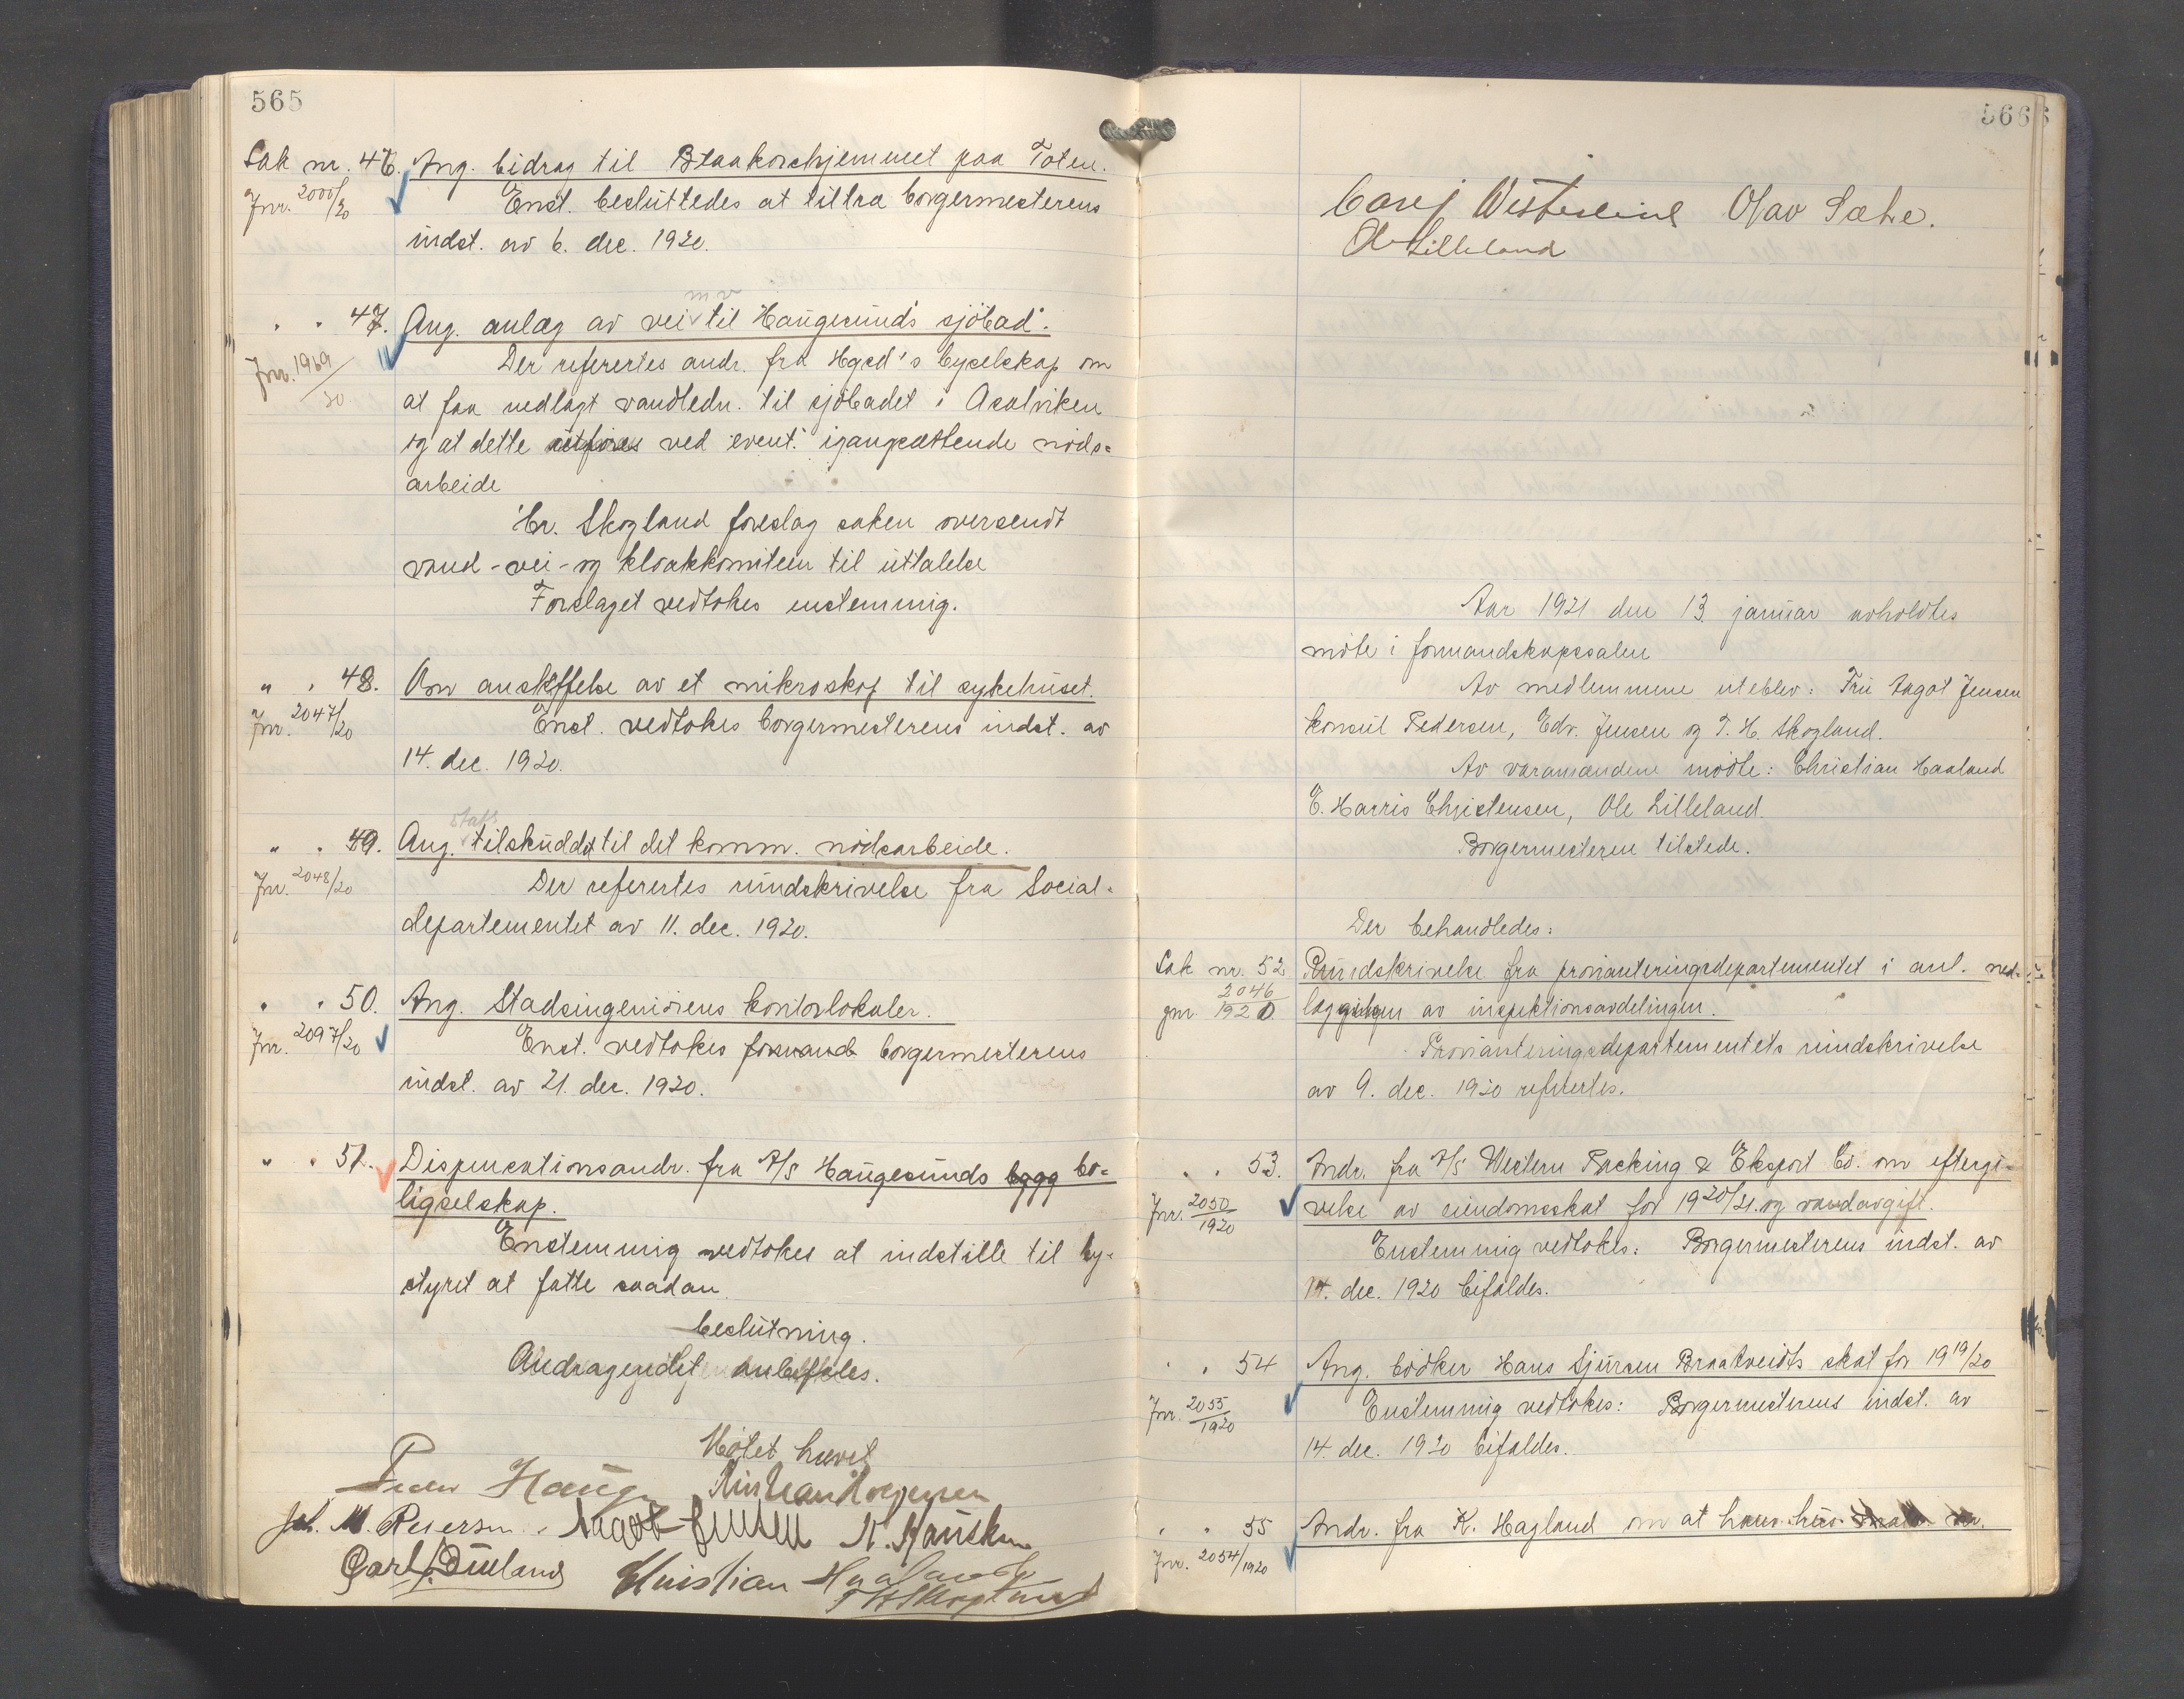 565
Sak nr. 46. Ang. bidrag til Blaakorshjemmet paa Toten.
Jnr. 2000/20 Enst. besluttedes at tiltra borgermesterens
indst. av 6. dec. 1920.
" " 47. Ang. anlæg av vei til Haugesunds sjöbad.
Jnr. 1969/20 Der refertes andr. fra Hgsd's byselskap om
at faa nedlagt vandledn. til sjöbadet i Asalviken
og at dette utföres ved event. igangsættende nöds=
arbeide
Hr. Skogland foreslog saken oversendt
vand-vei-og kloakkomiteen til uttalelse
Forslaget vedtokes enstemmig.
" " 48. Om anskaffelse av et mikroskop til sykehuset.
Jnr. 2047/20 Enst. vedtokes borgermesterens indst. av
14. dec. 1920.
stats
" " 49. Ang. tilskudd til det komm. nödsarbeide.
Jnr. 2048/20 Der refertes rundskrivelse fra Social=
departementet av 11. dec. 1920.
" " 50. Ang. Stadsingeniörens kontorlokaler.
Jnr. 2097/20 Enst. vedtokes borgermesterens
indst. av 21. dec. 1920.
" " 51. Dispensationsandr. fra A/S Haugesunds bygg bo=
ligselskap.
Enstemmig vedtokes at indstille til by=
styret at fatte saadan
beslutning.
Andragendet anbefales.
Mötet hævet
Peder Haugen Kristian Mogensen
Joh. M. Pedersen. Aagot Jensen N. Hansken
Carl J. Dueland Christian Haaland
T H Skogland
566
Westerlund Olav Sæbe.
Ole Lilleland
Aar 1921 den 13. januar avholdtes
möte i formandskapssalen
Av medlemmene uteblev: Fru Aagot Jensen
konsul Pedersen, Edv. Jensen og T. H. Skogland.
Av varamændene mödte: Christian Haaland
E. Harris Christensen, Ole Lilleland.
Borgermesteren tilstede.
Der behandledes:
Sak nr. 52. Rundskrivelse fra provianteringsdepartementet i anl. ned=
jnr. 2046/1920 læggelsen av inspektionsavdelingen.
Provianteringsdepartementets rundskrivelse
av 9. dec. 1920 refertes.
" " 53. Andr. fra A/S Western Packing & Eksport Co. om eftergi=
Jnr. 2050/1920 velse av eiendomsskat for 1920/21. og vandavgift.
Enstemmig vedtokes: Borgermesterens indst. av
14. dec. 1920 bifaldes.
" " 54 Ang. bödker Hans Sjursen Braatveidts skat for 1919/20
Jnr. 2055/1920 Enstemmig vedtokes: Borgermesterens indst. av
14. dec. 1920 bifaldes.
" " 55 Andr. fra K. Hagland om at hans hus
Jnr. 2054/1920